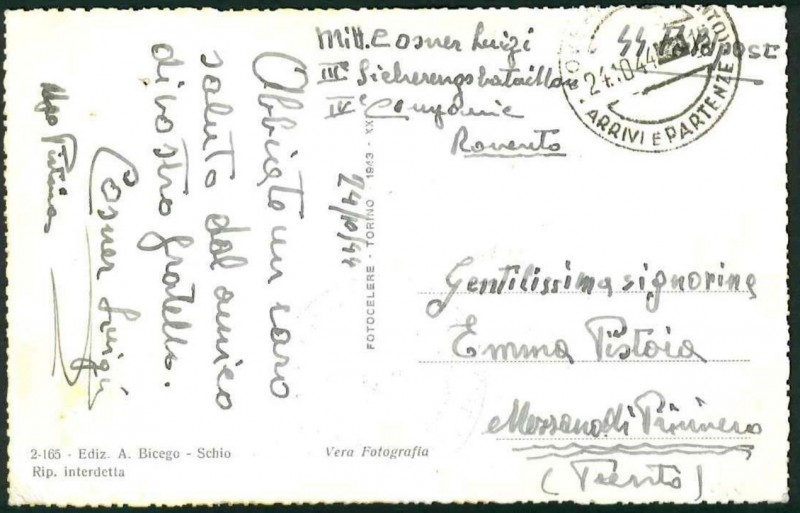 Mitt. Cosner Luigi
IIIe Sicherengsbataillon
IVe Componie
Rovereto
SS Feldpost
24.10.44
ARRIVI E PARTENZE
24/10/44
Abbiate un caro
saluto dal amico
di vostro fratello.
Cosner Luigi
FOTOCELERE - TORINO 1943 - XX
Gentilissima signorina
Emma Pistoia
Mezzano di Primiero
(Trento)
2-165 - Ediz. A. Bicego - Schio
Rip. interdetta
Vera Fotografia